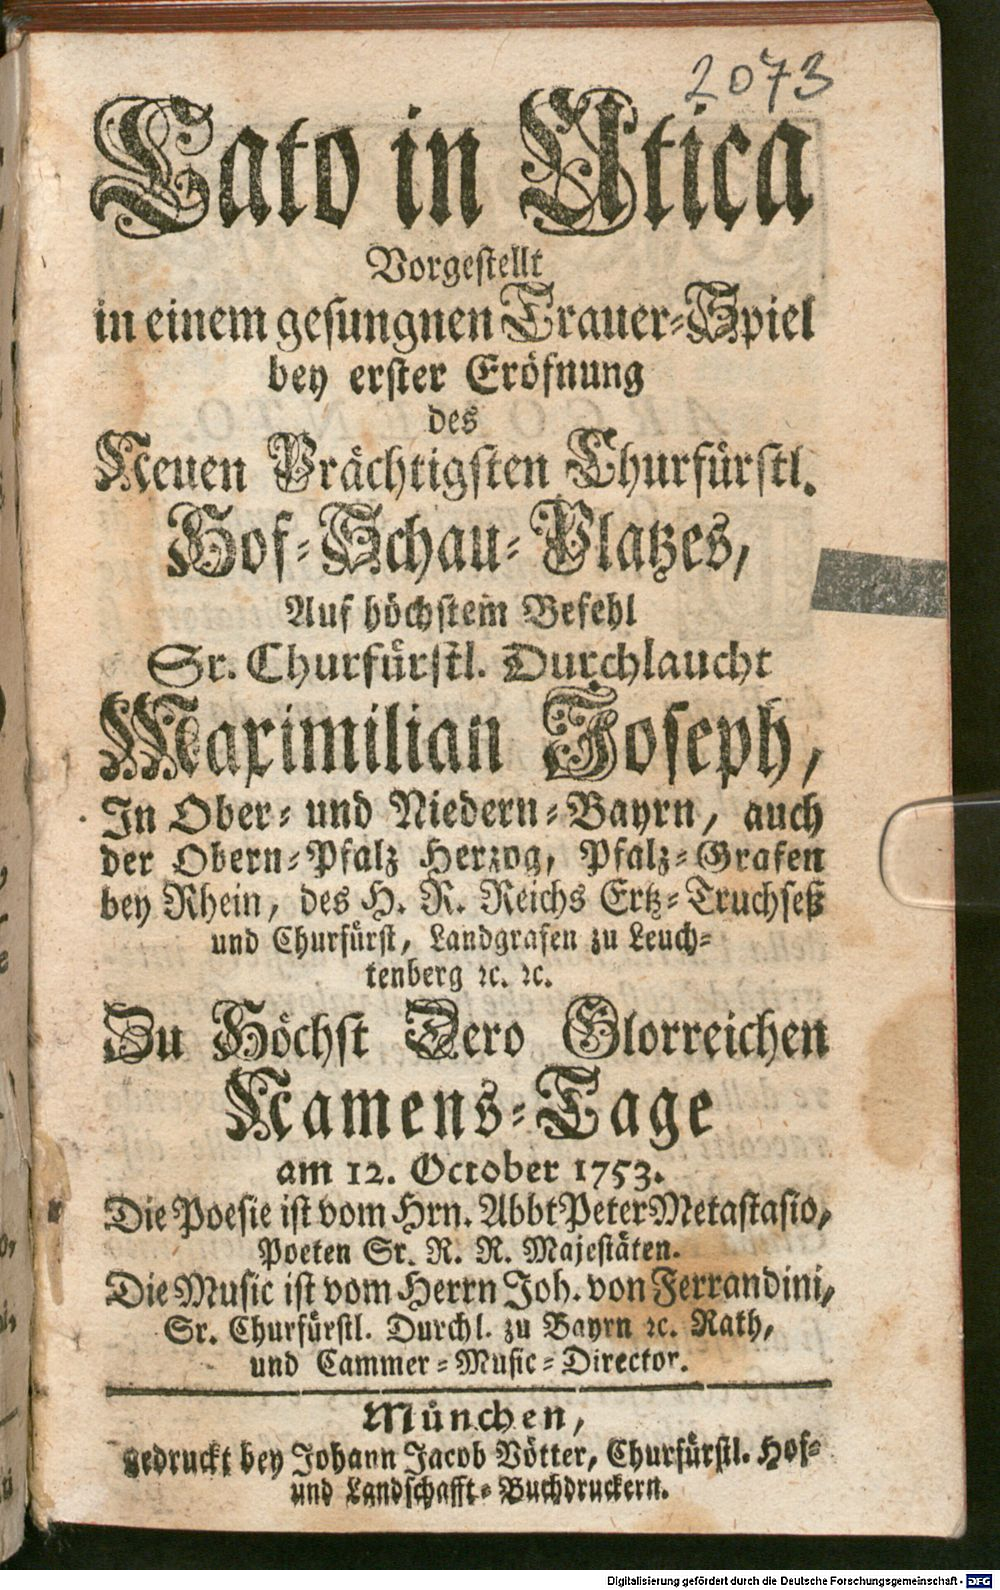 2073
Cato in Utica
Vorgestellt
in einem gesungnen Trauer-Spiel
bey erster Eröfnung
des
Neuen Prächtigsten Churfürstl.
Hof-Schau-Platzes,
Auf höchstem Befehl
Sr. Churfürstl. Durchlaucht
Maximilian Joseph,
In Ober- und Niedern-Bayrn, auch
der Obern-Pfalz Herzog, Pfalz-Grafen
bey Rhein, des H. R. Reichs Ertz-Truchseß
und Churfürst, Landgrafen zu Leuch-
tenberg ꝛc. ꝛc.
Zu Höchst Dero Glorreichen
Namens-Tage
am 12. October 1753.
Die Poesie ist vom Hrn. Abbt Peter Metastasio,
Poeten Sr. R. R. Majestäten.
Die Music ist vom Herrn Joh. von Ferrandini,
Sr. Churfürstl. Durchl. zu Bayrn ꝛc. Rath,
und Cammer-Music-Director.
München,
gedruckt bey Johann Jacob Vötter, Churfürstl. Hof-
und Landschafft-Buchdruckern.
Digitalisierung gefördert durch die Deutsche Forschungsgemeinschaft - DFG